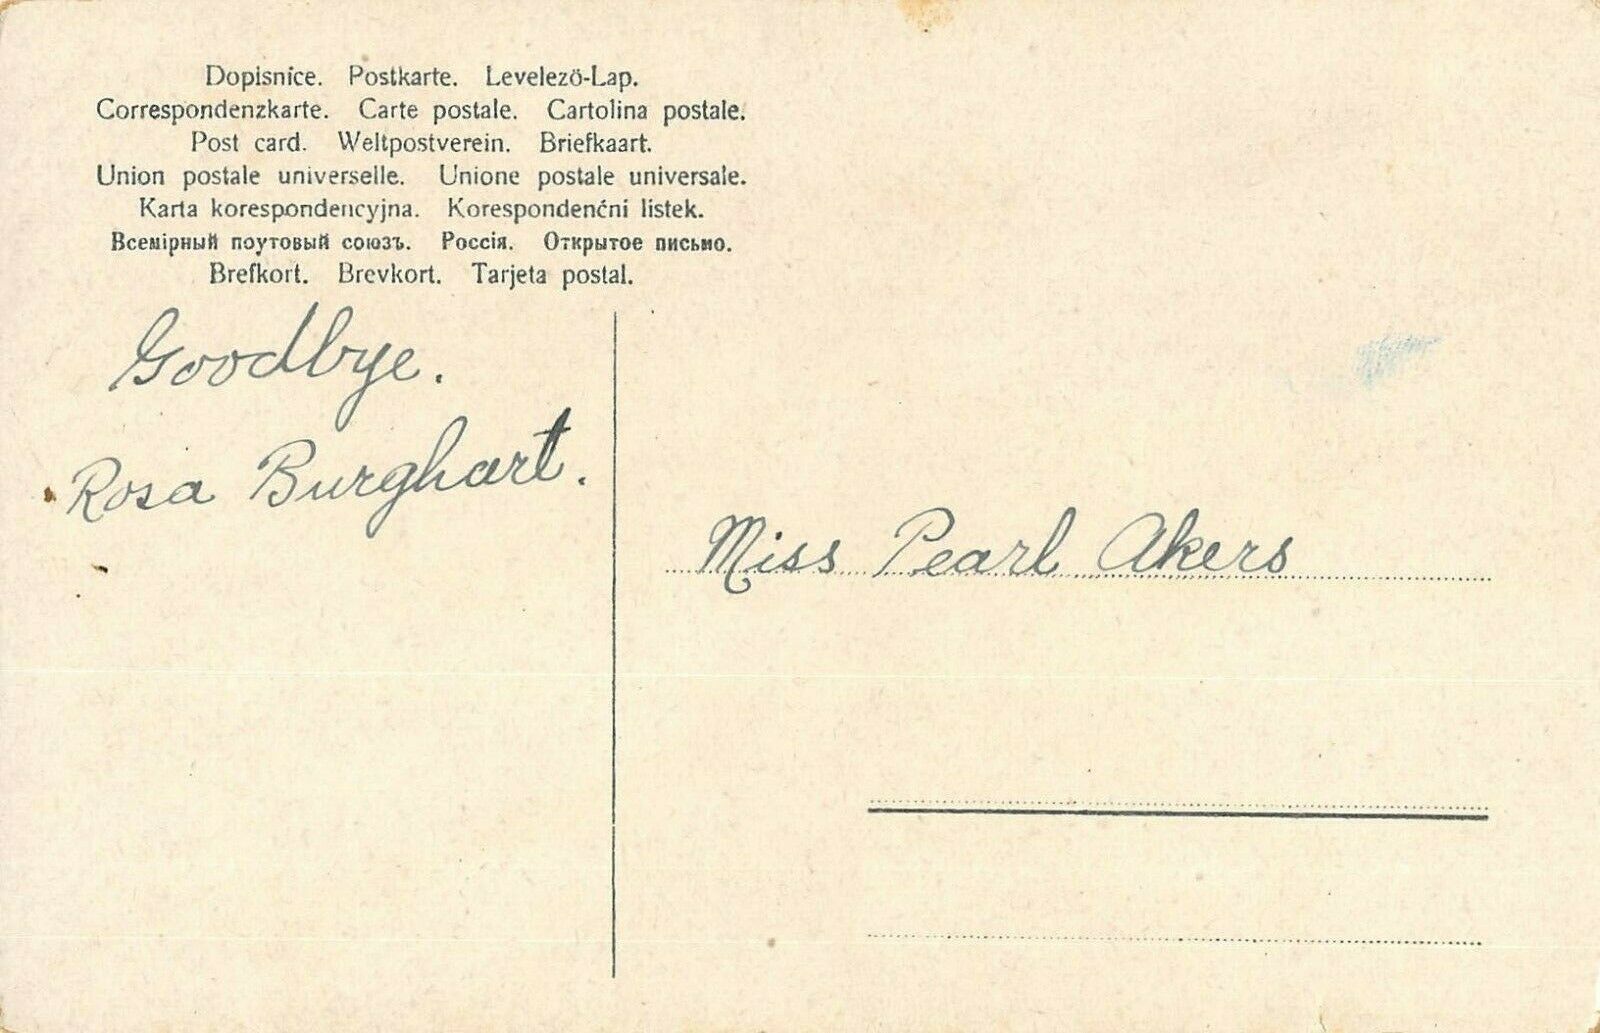 Dopisnice. Postkarte. Levelező-Lap.
Correspondenzkarte. Carte postale. Cartolina postale.
Post card. Weltpostverein. Briefkaart.
Union postale universelle. Unione postale universale.
Karta korespondencyjna. Korespondenćni listek.
Всемірный поутовый союзъ. Россія. Открытое письмо.
Brefkort. Brevkort. Tarjeta postal.
Goodbye.
Rosa Burghart.
Miss Pearl Akers